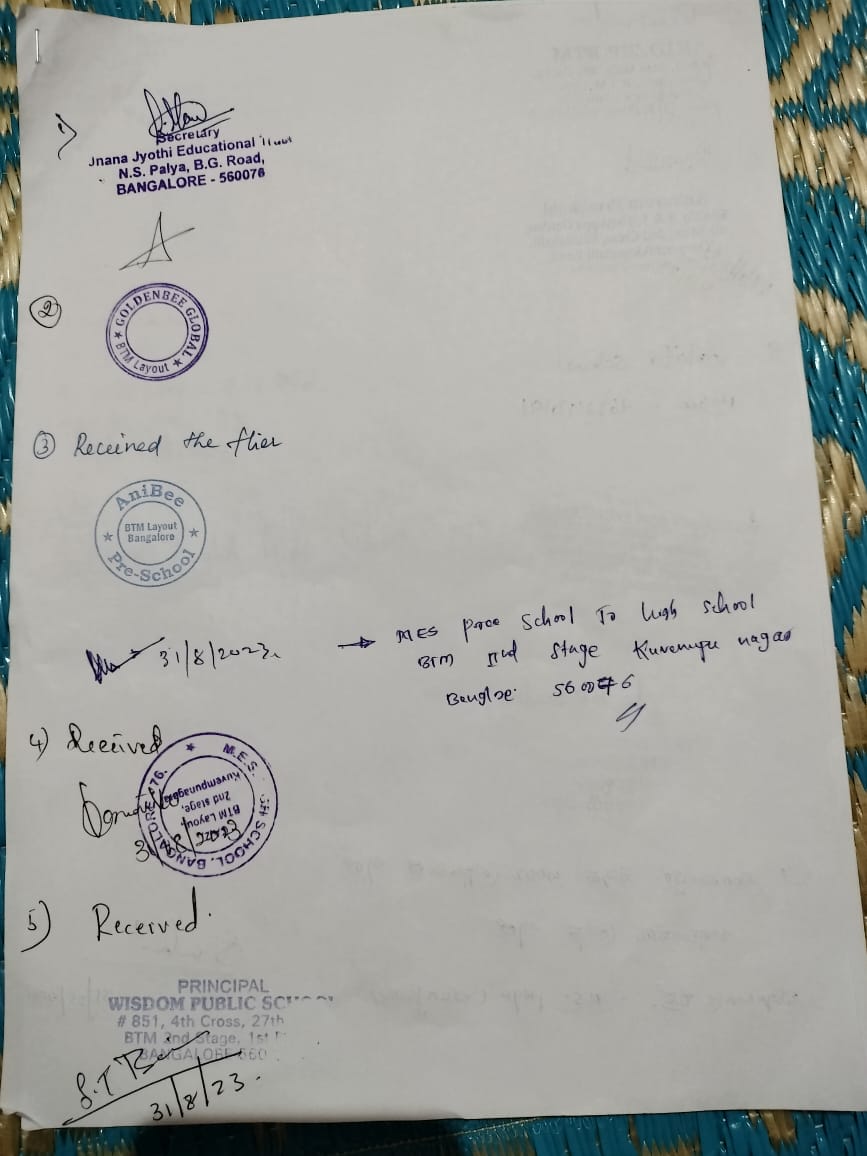 1)
Secretary
Jnana Jyothi Educational Trust
N.S. Palya, B.G. Road,
BANGALORE - 560076
2
★ GOLDENBEE GLOBAL ★
BTM Layout
3 Received the flier
AniBee
★ BTM Layout ★
Bangalore
Pre-School
31/8/2023
→ MES School To high school
BTM IInd Stage Kuvempu nagar
560076
4) Received
★ M.E.S. SCHOOL, BANGALORE 76.
Kuvempunagar
2nd stage,
BTM Layout
31/8/2023
5) Received.
PRINCIPAL
WISDOM PUBLIC SCHOOL
# 851, 4th Cross, 27th
BTM 2nd Stage, 1st
BANGALORE 560
31/8/23.